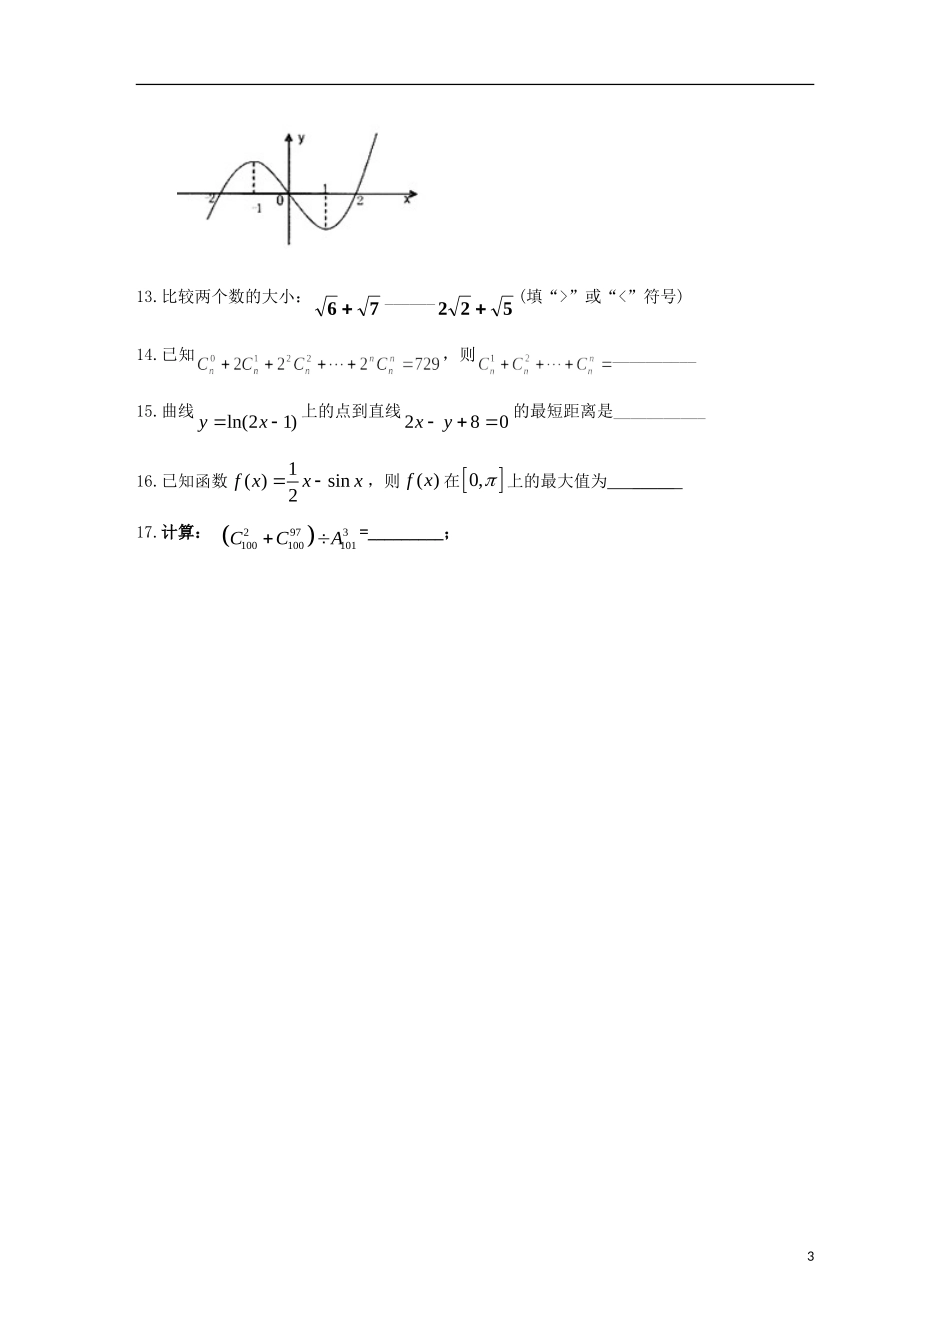 y
-2 -1 0 1 2 x
13.比较两个数的大小：√6+√7 ______ 2√2+√5 (填“>”或“<”符号)
14.已知C_n^0+2C_n^1+2^2C_n^2+⋯+2^nC_n^n=729，则C_n^1+C_n^2+⋯+C_n^n=__________
15.曲线y=ln(2x-1)上的点到直线2x-y+8=0的最短距离是___________
16.已知函数f(x)=1/2x-sin x，则f(x)在[0,π]上的最大值为_________
17.计算：(C_100^2+C_100^97)÷A_101^3=_________；
3